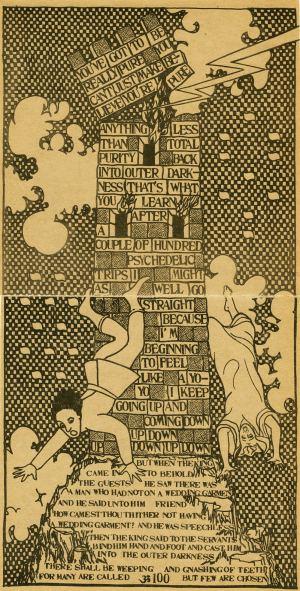 YOU'VE GOT TO BE
REALLY PURE YOU
CAN'T JUST MAKE BE-
LIEVE YOU'RE PURE
ANYTHING LESS
THAN TOTAL
PURITY BACK
INTO OUTER DARK-
NESS THAT'S WHAT
YOU LEARN
AFTER
A
COUPLE OF HUNDRED
PSYCHEDELIC
TRIPS I MIGHT
AS WELL GO
STRAIGHT
BECAUSE
I'M
BEGINNING
TO FEEL
LIKE A YO-
YO I KEEP
GOING UP AND
COMING DOWN
UP DOWN
UP DOWN UP DOWN
BUT WHEN THE KING
CAME IN TO BEHOLD
THE GUESTS HE SAW THERE WAS
A MAN WHO HAD NOT ON A WEDDING GARMENT
AND HE SAID UNTO HIM FRIEND
HOW CAMEST THOU HITHER NOT HAVING
A WEDDING GARMENT? AND HE WAS SPEECHLESS
THEN THE KING SAID TO THE SERVANTS
BIND HIM HAND AND FOOT AND CAST HIM
INTO THE OUTER DARKNESS
THERE SHALL BE WEEPING AND GNASHING OF TEETH
FOR MANY ARE CALLED 100 BUT FEW ARE CHOSEN